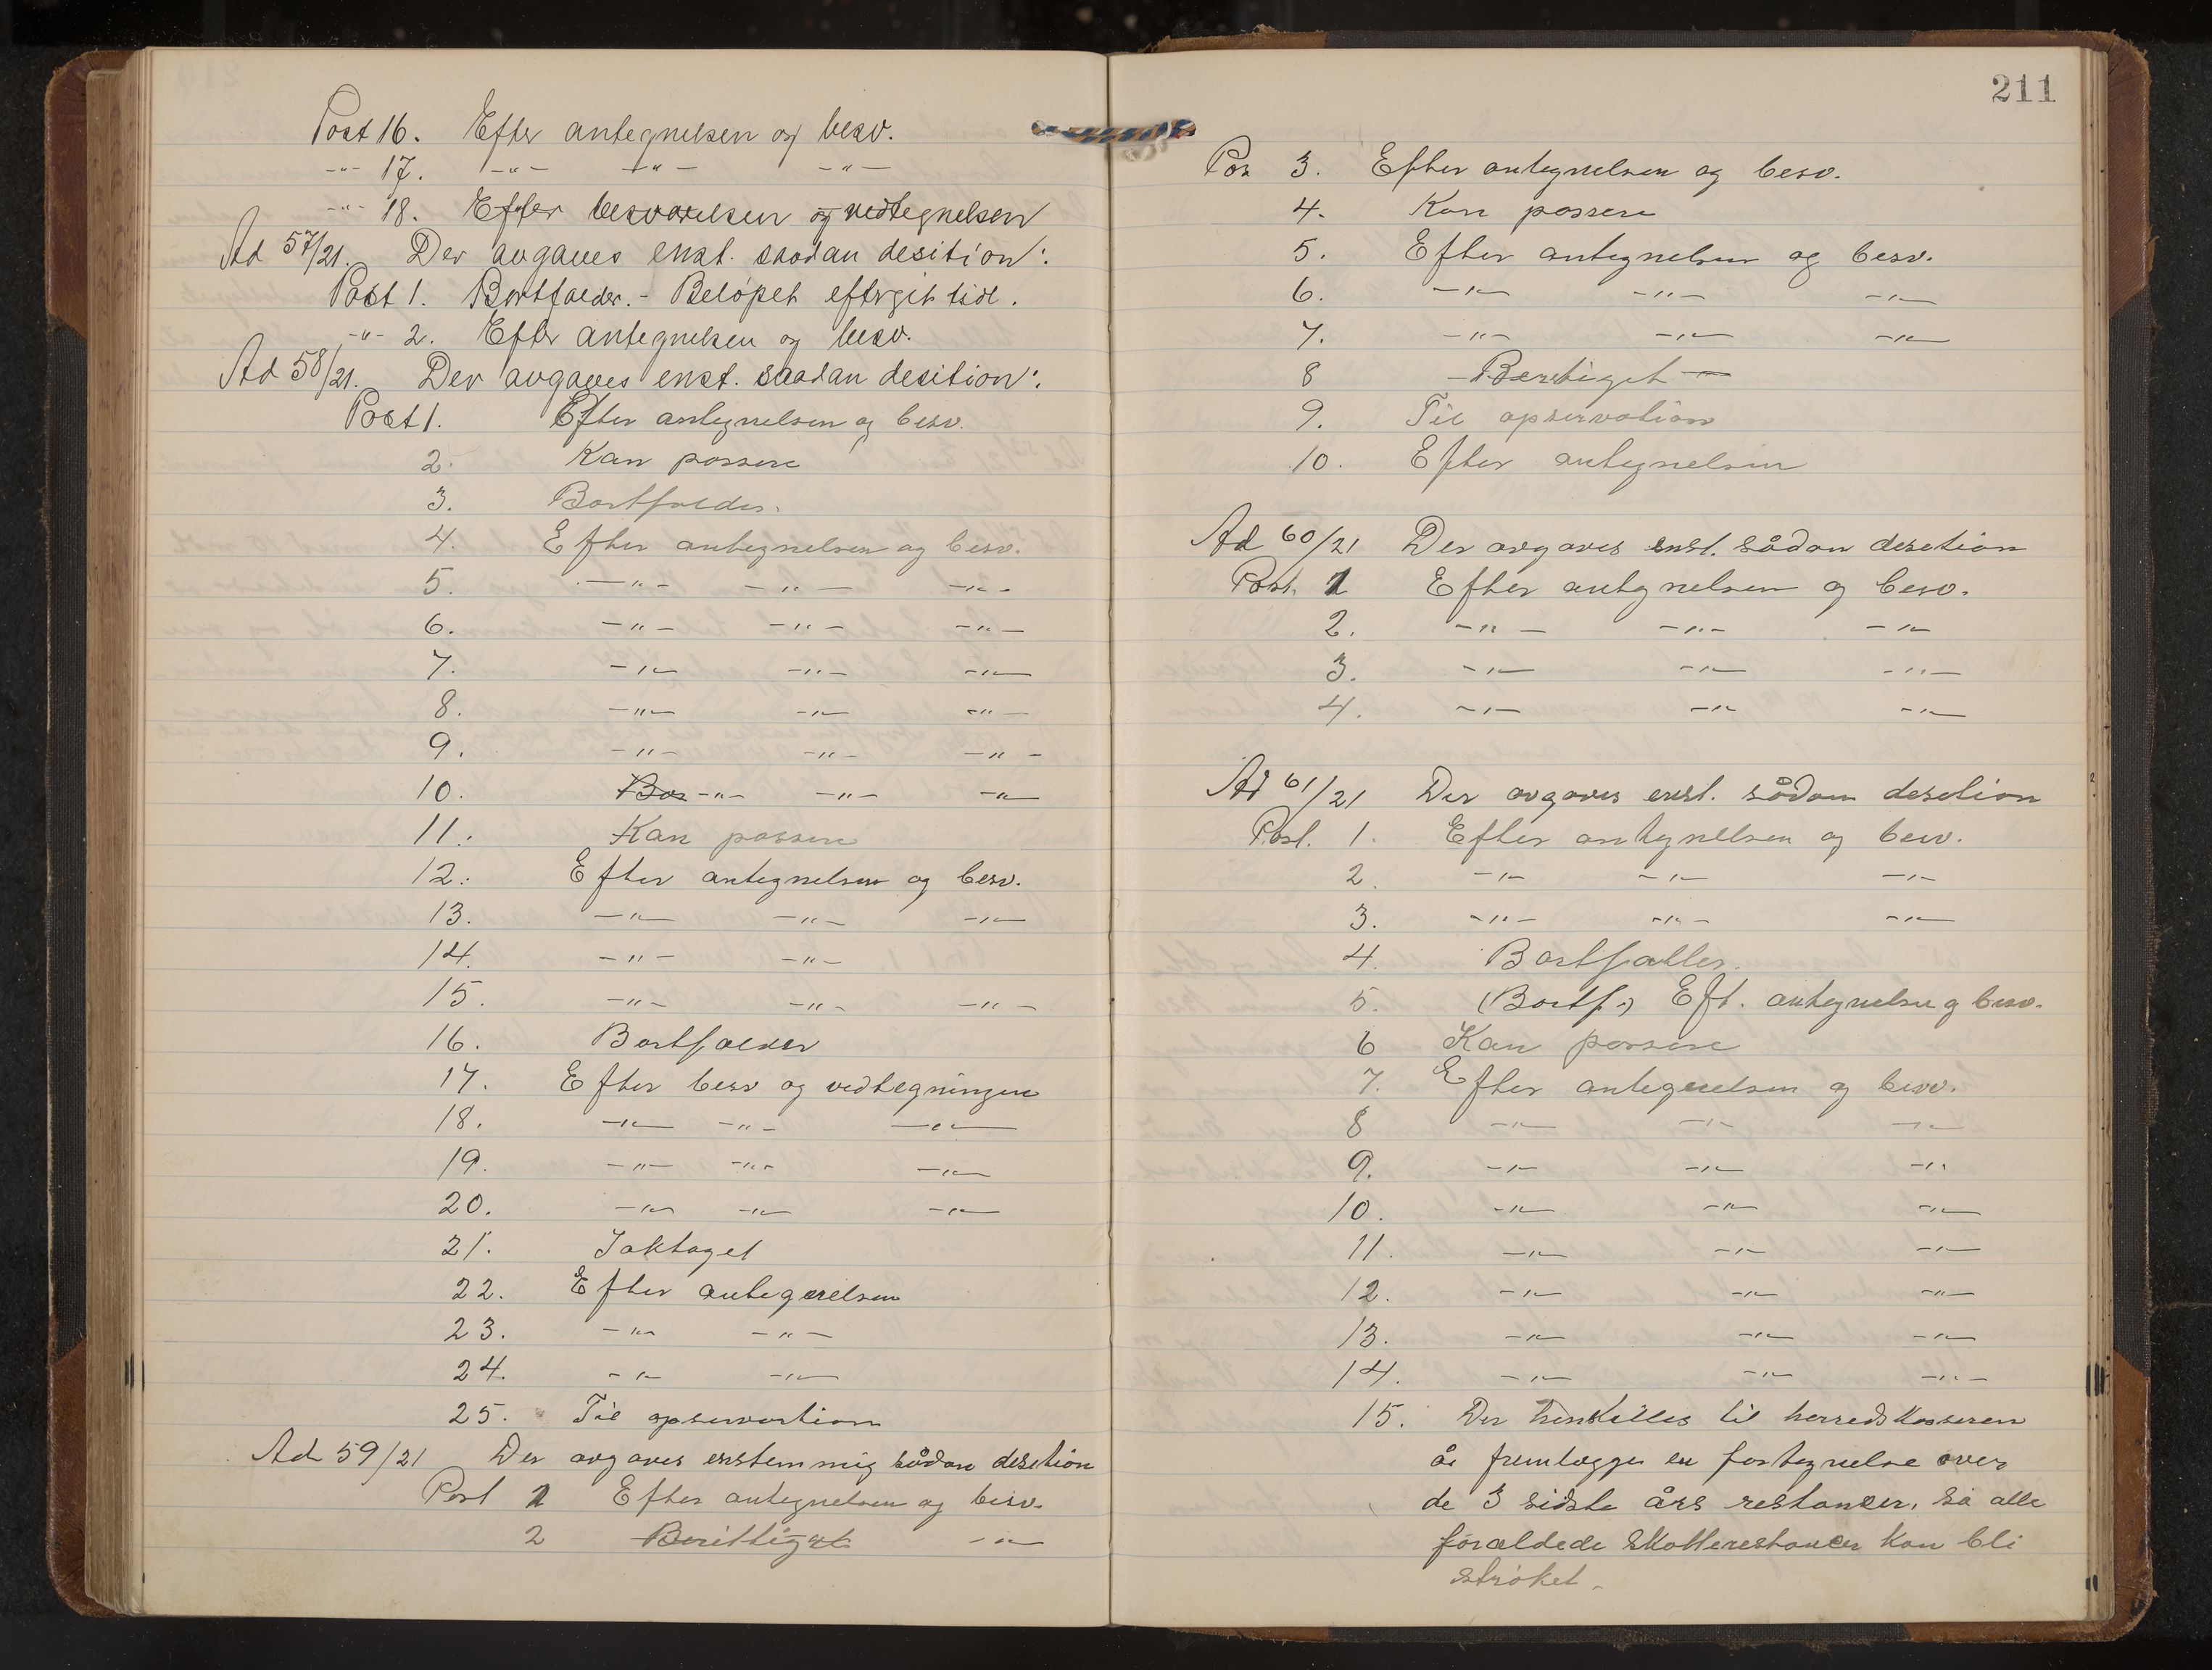 Post 16. Efter antegnelsen og besv.
-"- 17. -"- -"- -"-
-"- 18. Efter besvarelsen og vedtegnelsen
Ad 57/21. Der avgaves enst. saadan desition:
Post 1. Bortfalder. - Beløpet eftergit tidl.
-"- 2. Efter antegnelsen og besv.
Ad 58/21. Der avgaves enst. saadan desition:
Post 1. Efter antegnelsen og besv.
2. Kan passere
3. Bortfalder.
4. Efter antegnelsen og besv.
5. -"- -"- -"-
6. -"- -"- -"-
7. -"- -"- -"-
8. -"- -"- -"-
9. -"- -"- -"-
10. Bor -"- -"- -"-
11. Kan passere
12. Efter antegnelsen og besv.
13. -"- -"- -"-
14. -"- -"-
15. -"- -"- -"-
16. Bortfalder
17. Efter besv og vedtegningen
18. -"- -"- -"-
19. -"- -"- -"-
20. -"- -"- -"-
21. Iaktaget
22. Efter antegnelsen
23. -"- -"-
24. -"- -"-
25. Til opservartion
Ad 59/21 Der avgaves enstemmig sådan desetion
Post 1 Efter antegnelsen og besv.
2 Berittiget -"-
211
Pos 3. Efter antegnelsen og besv.
4. Kan passere
5. Efter antegnelsen og besv.
6. -"- -"- -"-
7. -"- -"- -"-
8 - Berettiget -
9. Til opservation
10. Efter antegnelsen
Ad 60/21 Der avgaves enst. sådan desetion
Post. 1 Efter antegnelsen og besv.
2. -"- -"- -"-
3. -"- -"- -"-
4. -"- -"- -"-
Ad 61/21 Der avgaves enst. sådan desetion
Post. 1. Efter antegnelsen og besv.
2. -"- -"- -"-
3. -"- -"- -"-
4. Bortfaller.
5. (Bortf.) Eft. antegnelse g besv.
6 Kan passere
7. Efter antegnelsen og besv.
8 -"- -"- -"-
9. -"- -"- -"-
10. -"- -"- -"-
11. -"- -"- -"-
12. -"- -"- -"-
13. -"- -"- -"-
14. -"- -"- -"-
15. Der henstilles til herredskasseren
å fremlægge en fortegnelse over
de 3 sidste års restanser, så alle
forældede skatterestancer kan bli
strøket.